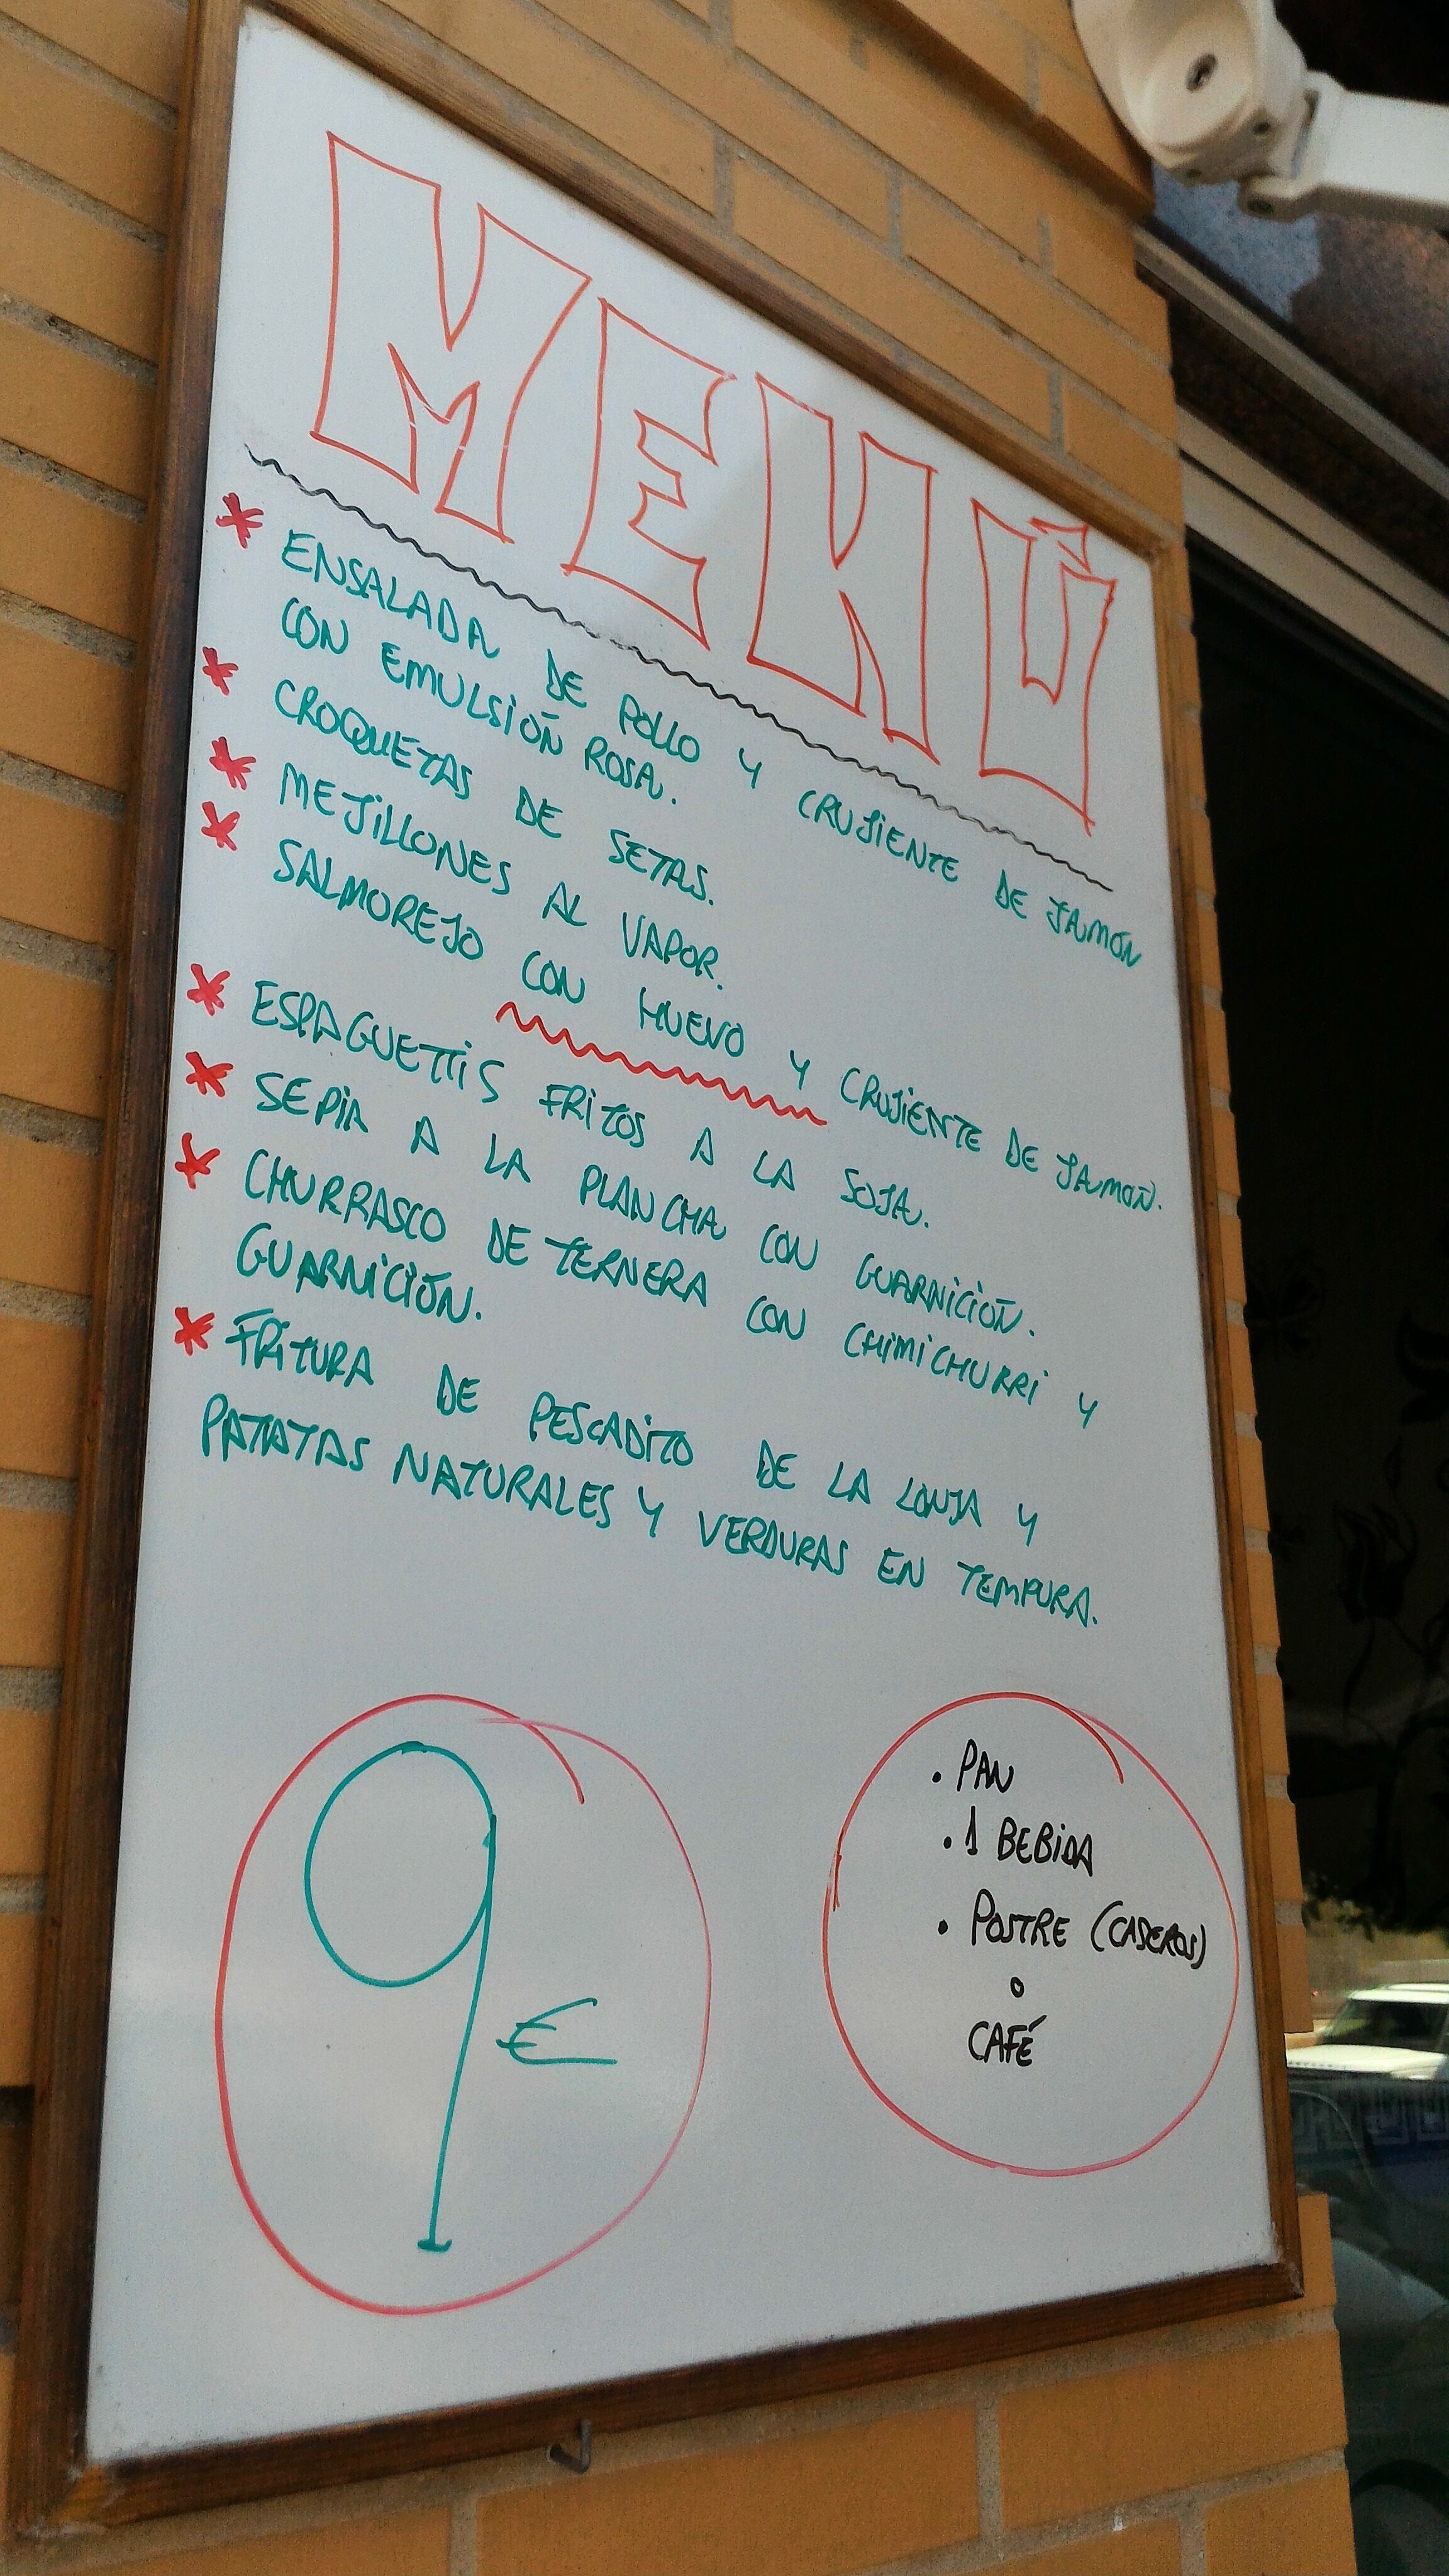 MENÚ
ENSALADA DE POLLO Y CRUJIENTE DE JAMÓN
CON EMULSIÓN ROSA.
CROQUETAS DE SETAS.
MEJILLONES AL VAPOR.
SALMOREJO CON HUEVO Y CRUJIENTE DE JAMÓN.
ESPAGUETTIS FRITOS A LA SOJA.
SEPIA A LA PLANCHA CON GUARNICIÓN.
CHURRASCO DE TERNERA CON CHIMICHURRI Y
GUARNICIÓN.
FRITURA DE PESCADITO DE LA LONJA Y
PATATAS NATURALES Y VERDURAS EN TEMPURA.
9 €
• PAN
• 1 BEBIDA
• POSTRE (CASEROS)
o
CAFÉ